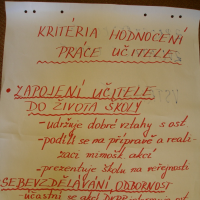 KRITÉRIA HODNOCENÍ
PRÁCE UČITELE
• ZAPOJENÍ UČITELE
DO ŽIVOTA ŠKOLY
- udržuje dobré vztahy s ost.
- podílí se na přípravě a reali-
zaci mimošk. akcí
- prezentuje školu na veřejnosti
SEBEVZDĚLÁVÁNÍ, ODBORNOST
- účastní se akcí DVPP